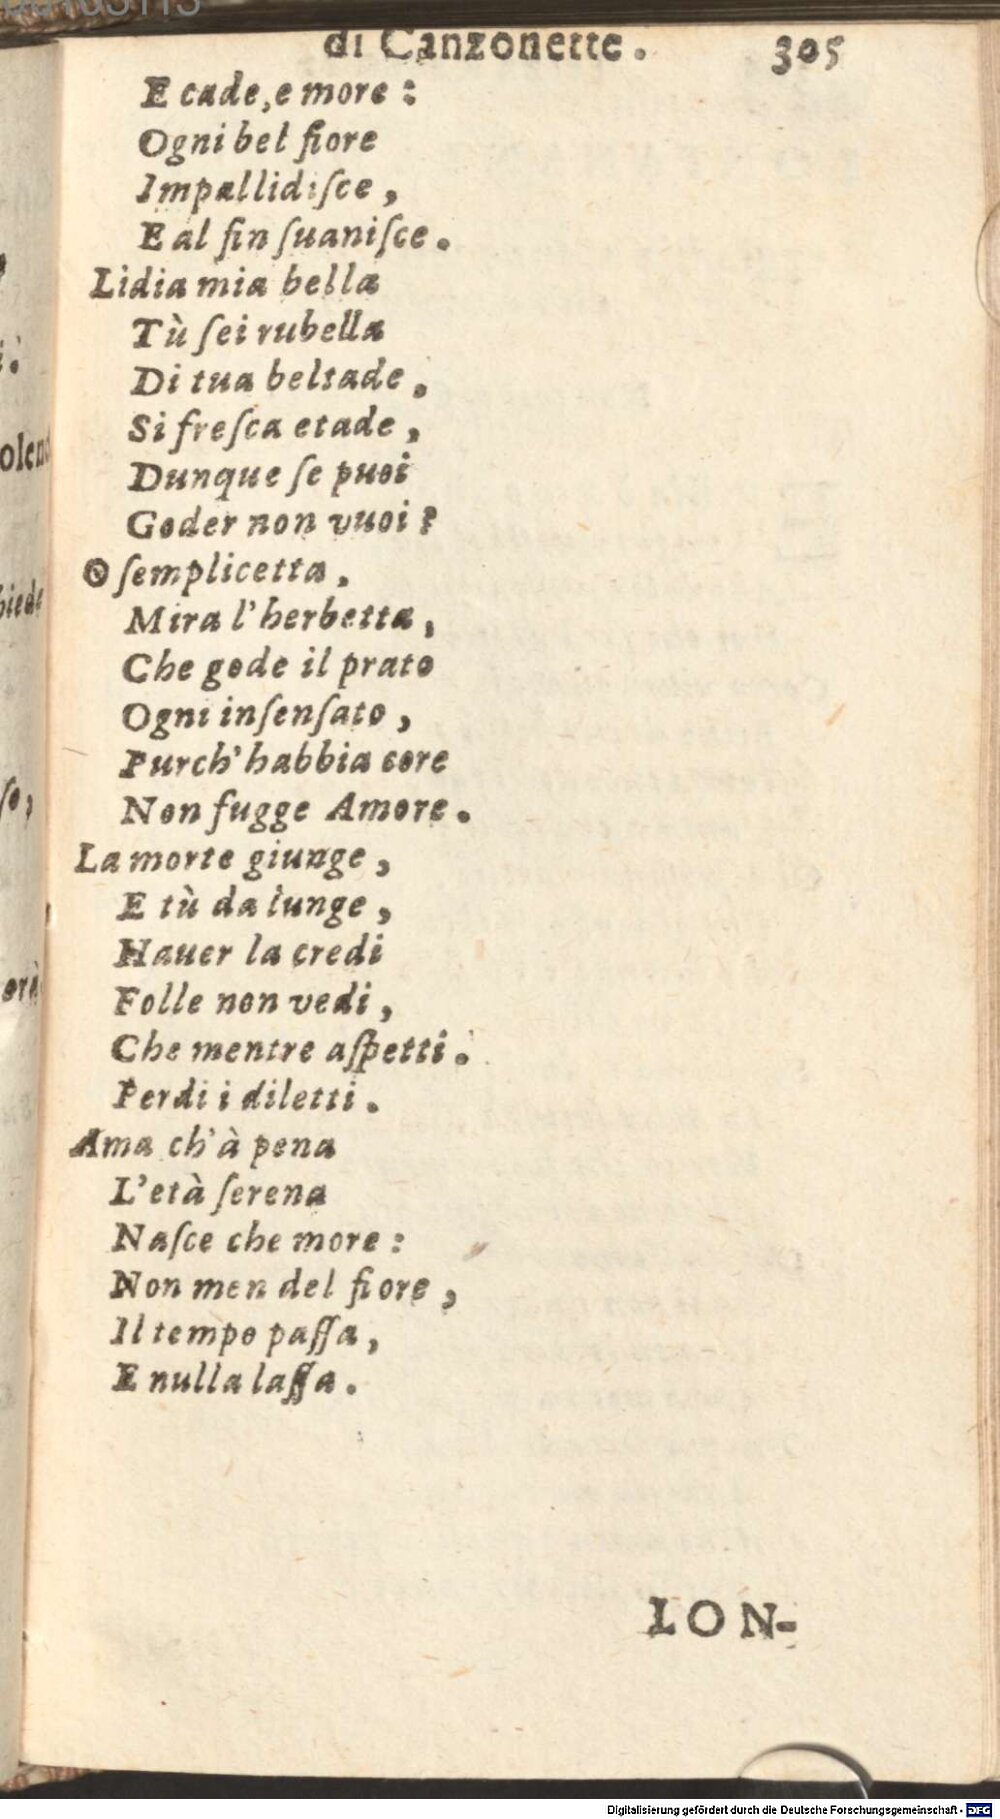 di Canzonette. 305
E cade, e more:
Ogni bel fiore
Impallidiſce,
E al fin ſuaniſce.
Lidia mia bella
Tù ſei rubella
Di tua beltade.
Si freſca etade,
Dunque ſe puoi
Goder non vuoi?
O ſemplicetta.
Mira l'herbetta,
Che gode il prato
Ogni inſenſato,
Purch'habbia core
Non fugge Amore.
La morte giunge,
E tù da lunge,
Hauer la credi
Folle non vedi,
Che mentre aſpetti.
Perdi i diletti.
Ama ch'à pena
L'età ſerena
Naſce che more:
Non men del fiore,
Il tempo paſſa,
E nulla laſſa.
LON-
Digitalisierung gefördert durch die Deutsche Forschungsgemeinschaft - DFG